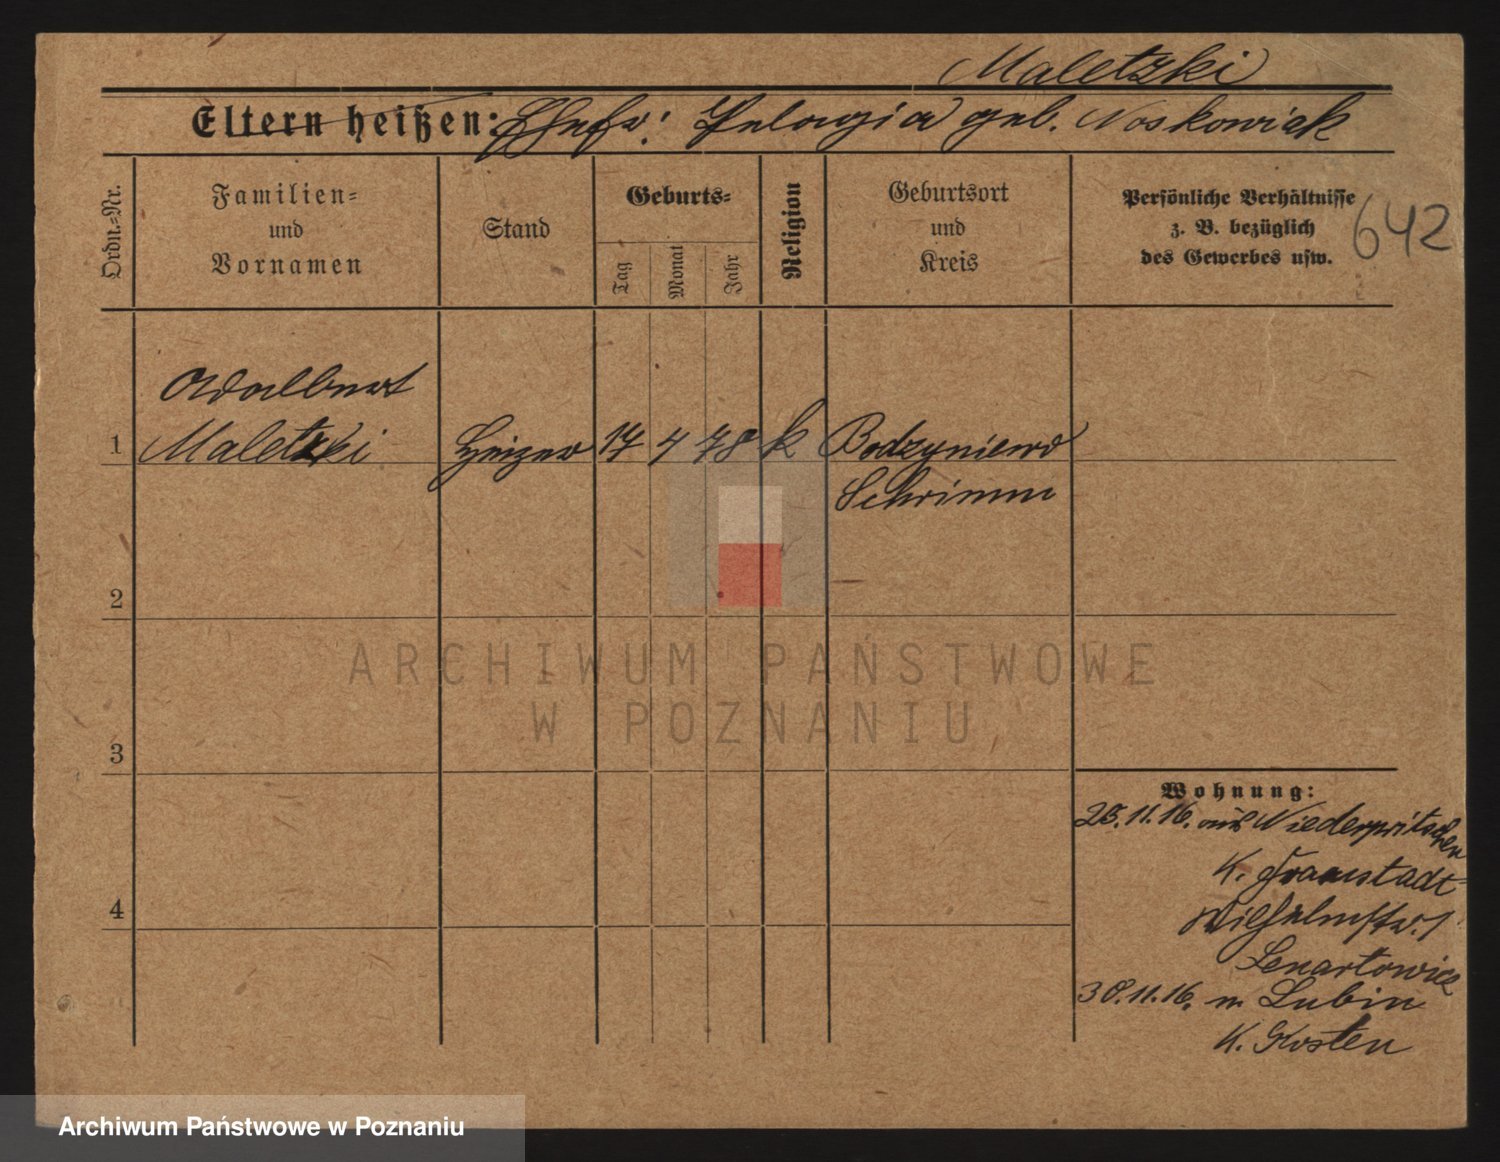 Maletzki
Eltern heißen: Ehefr: Pelagia geb. Noskowiak
Ordn.-Nr.
Familien-
und
Vornamen
Stand
Geburts-
Tag
Monat
Jahr
Religion
Geburtsort
und
Kreis
Persönliche Verhältnisse
z. B. bezüglich
des Gewerbes usw.
642
Adalbert
1 Maletzki Heizer 17 4 78 k Bodzyniewo
Schrimm
2
3
4
Wohnung:
25.11.16. aus Niederpritschen
K. Fraustadt
Wilhelmstr. 1
Lenartowicz
30.11.16. n. Lubin
K. Kosten
ARCHIWUM PAŃSTWOWE
W POZNANIU
Archiwum Państwowe w Poznaniu